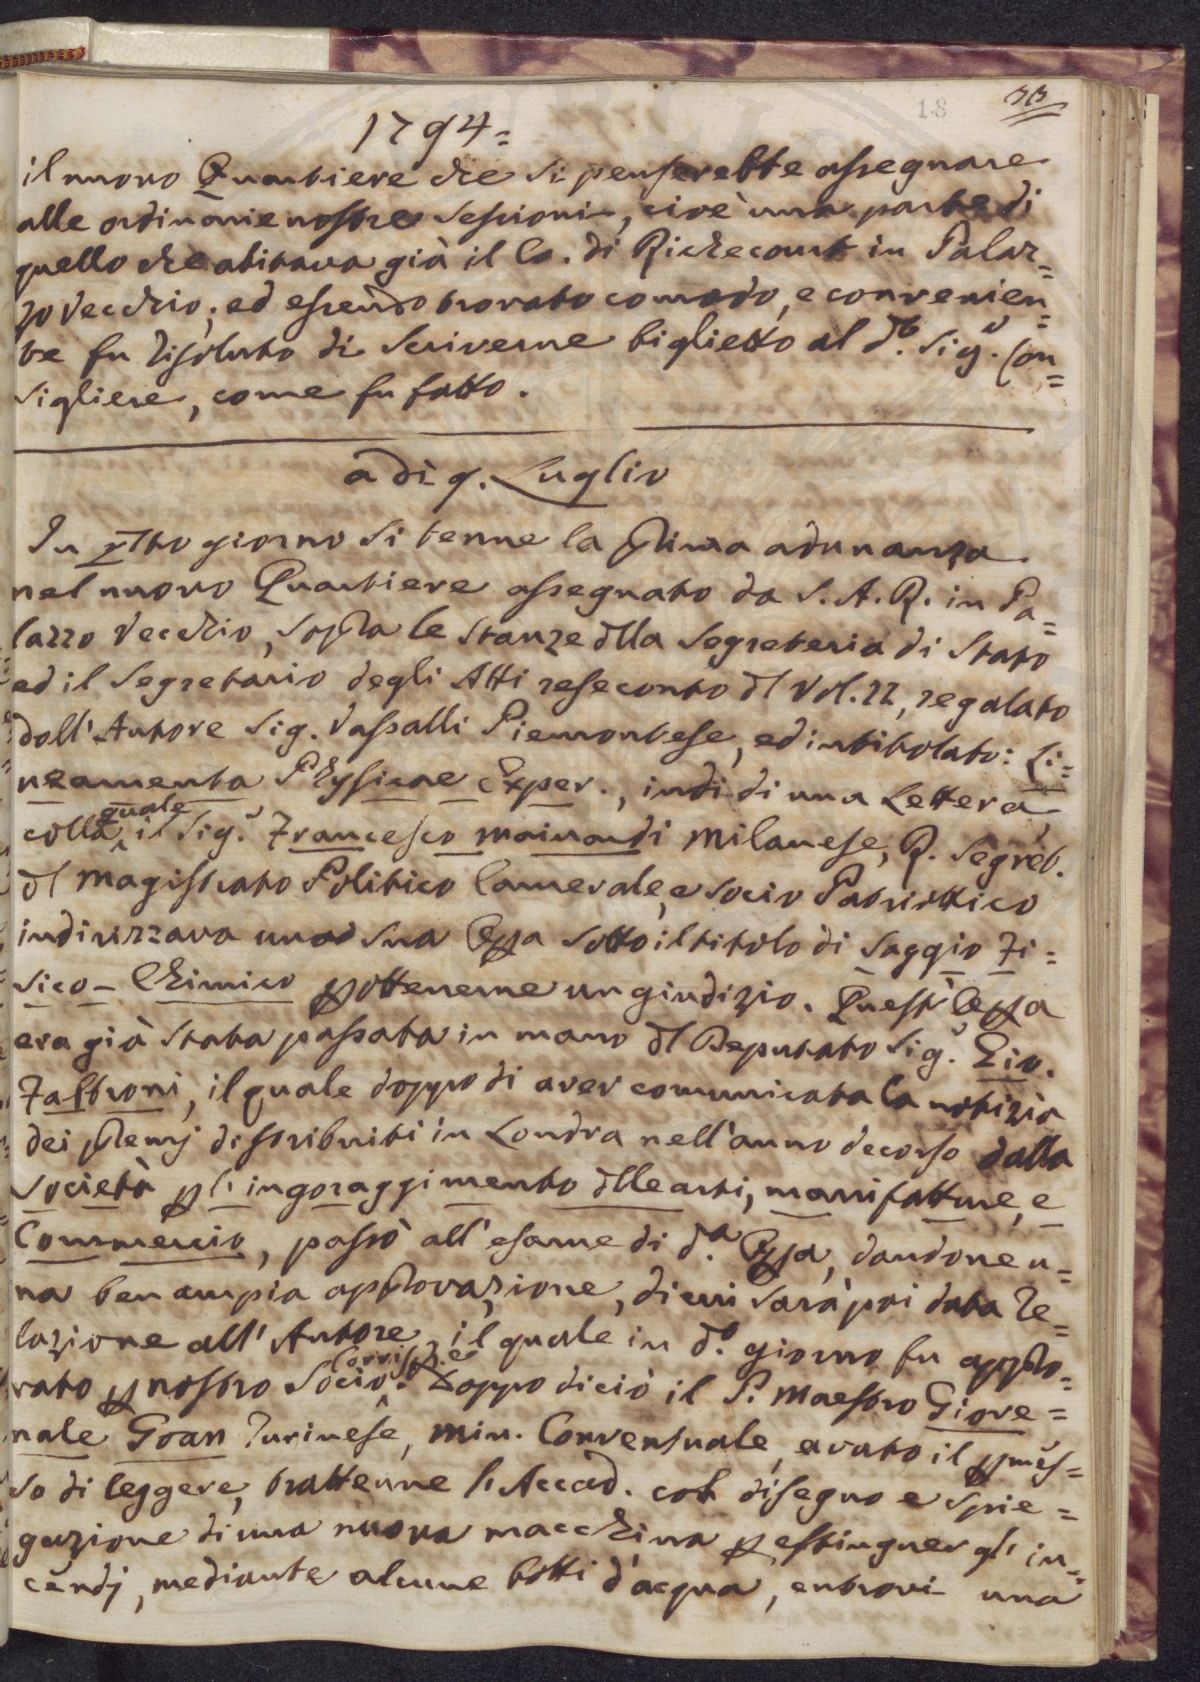 18
33
1794=
il nuovo Quartiere che si penserebbe assegnare
alle ordinarie nostre sessioni, cioè una parte di
quello che abitava già il Co. di Richecourt in Palaz=
zo Vecchio; ed essendo trovato comodo, e convenien=
te fu risoluto di scriverne biglietto al d.to Sig.r Con=
sigliere, come fu fatto.
a dì 9. Luglio
In q̃to giorno si tenne la prima adunanza
nel nuovo Quartiere assegnato da S. A. R. in Pa=
lazzo Vecchio, sopra le stanze dlla Segreteria di Stato
ed il Segretario degli Atti rese conto dl Vol. 22, regalato
dall'Autore Sig. Vassalli Piemontese, ed intitolato: Li=
neamenta Physicae Exper., indi di una Lettera
colla quale il Sig.r Francesco Mainardi Milanese, R. Segret.
dl Magistrato Politico Camerale, e socio Patriottico
indirizzava una sua Opa sotto il titolo di Saggio Fi=
sico-Chimico p ottenerne un giudizio. Quest'Opa
era già stata passata in mano dl Deputato Sig.r Gio.
Fabbroni, il quale doppo di aver comunicata la notizia
dei premj distribuiti in Londra nell'anno decorso dalla
Società p l'ingoraggimento dlle arti, manifatture, e
Commercio, passò all'esame di d.a Opa, dandone u=
na ben ampia approvazione, di cui sarà poi data re=
lazione all'Autore, il quale in d.o giorno fu appro=
vato p nostro Socio Corrisp.e Doppo di ciò il P. Maestro Giove=
nale Goan Turinese, Min. Conventuale, avuto il pmes=
so di leggere, trattenne l'Accad. col disegno e spie=
gazione di una nuova macchina p estinguer gl'in=
cendj, mediante alcune botti d'acqua, entrovi una